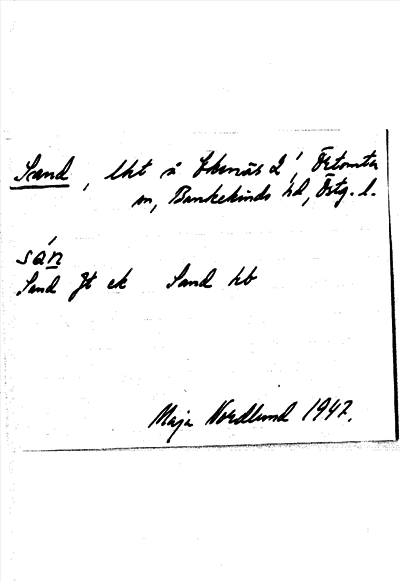 Sand, lht å Ekenäs 2', Örtomta
sn, Bankekinds hd, Östg. l.
sán
Sand Jt ek Sand hb
Maja Nordlund 1947.